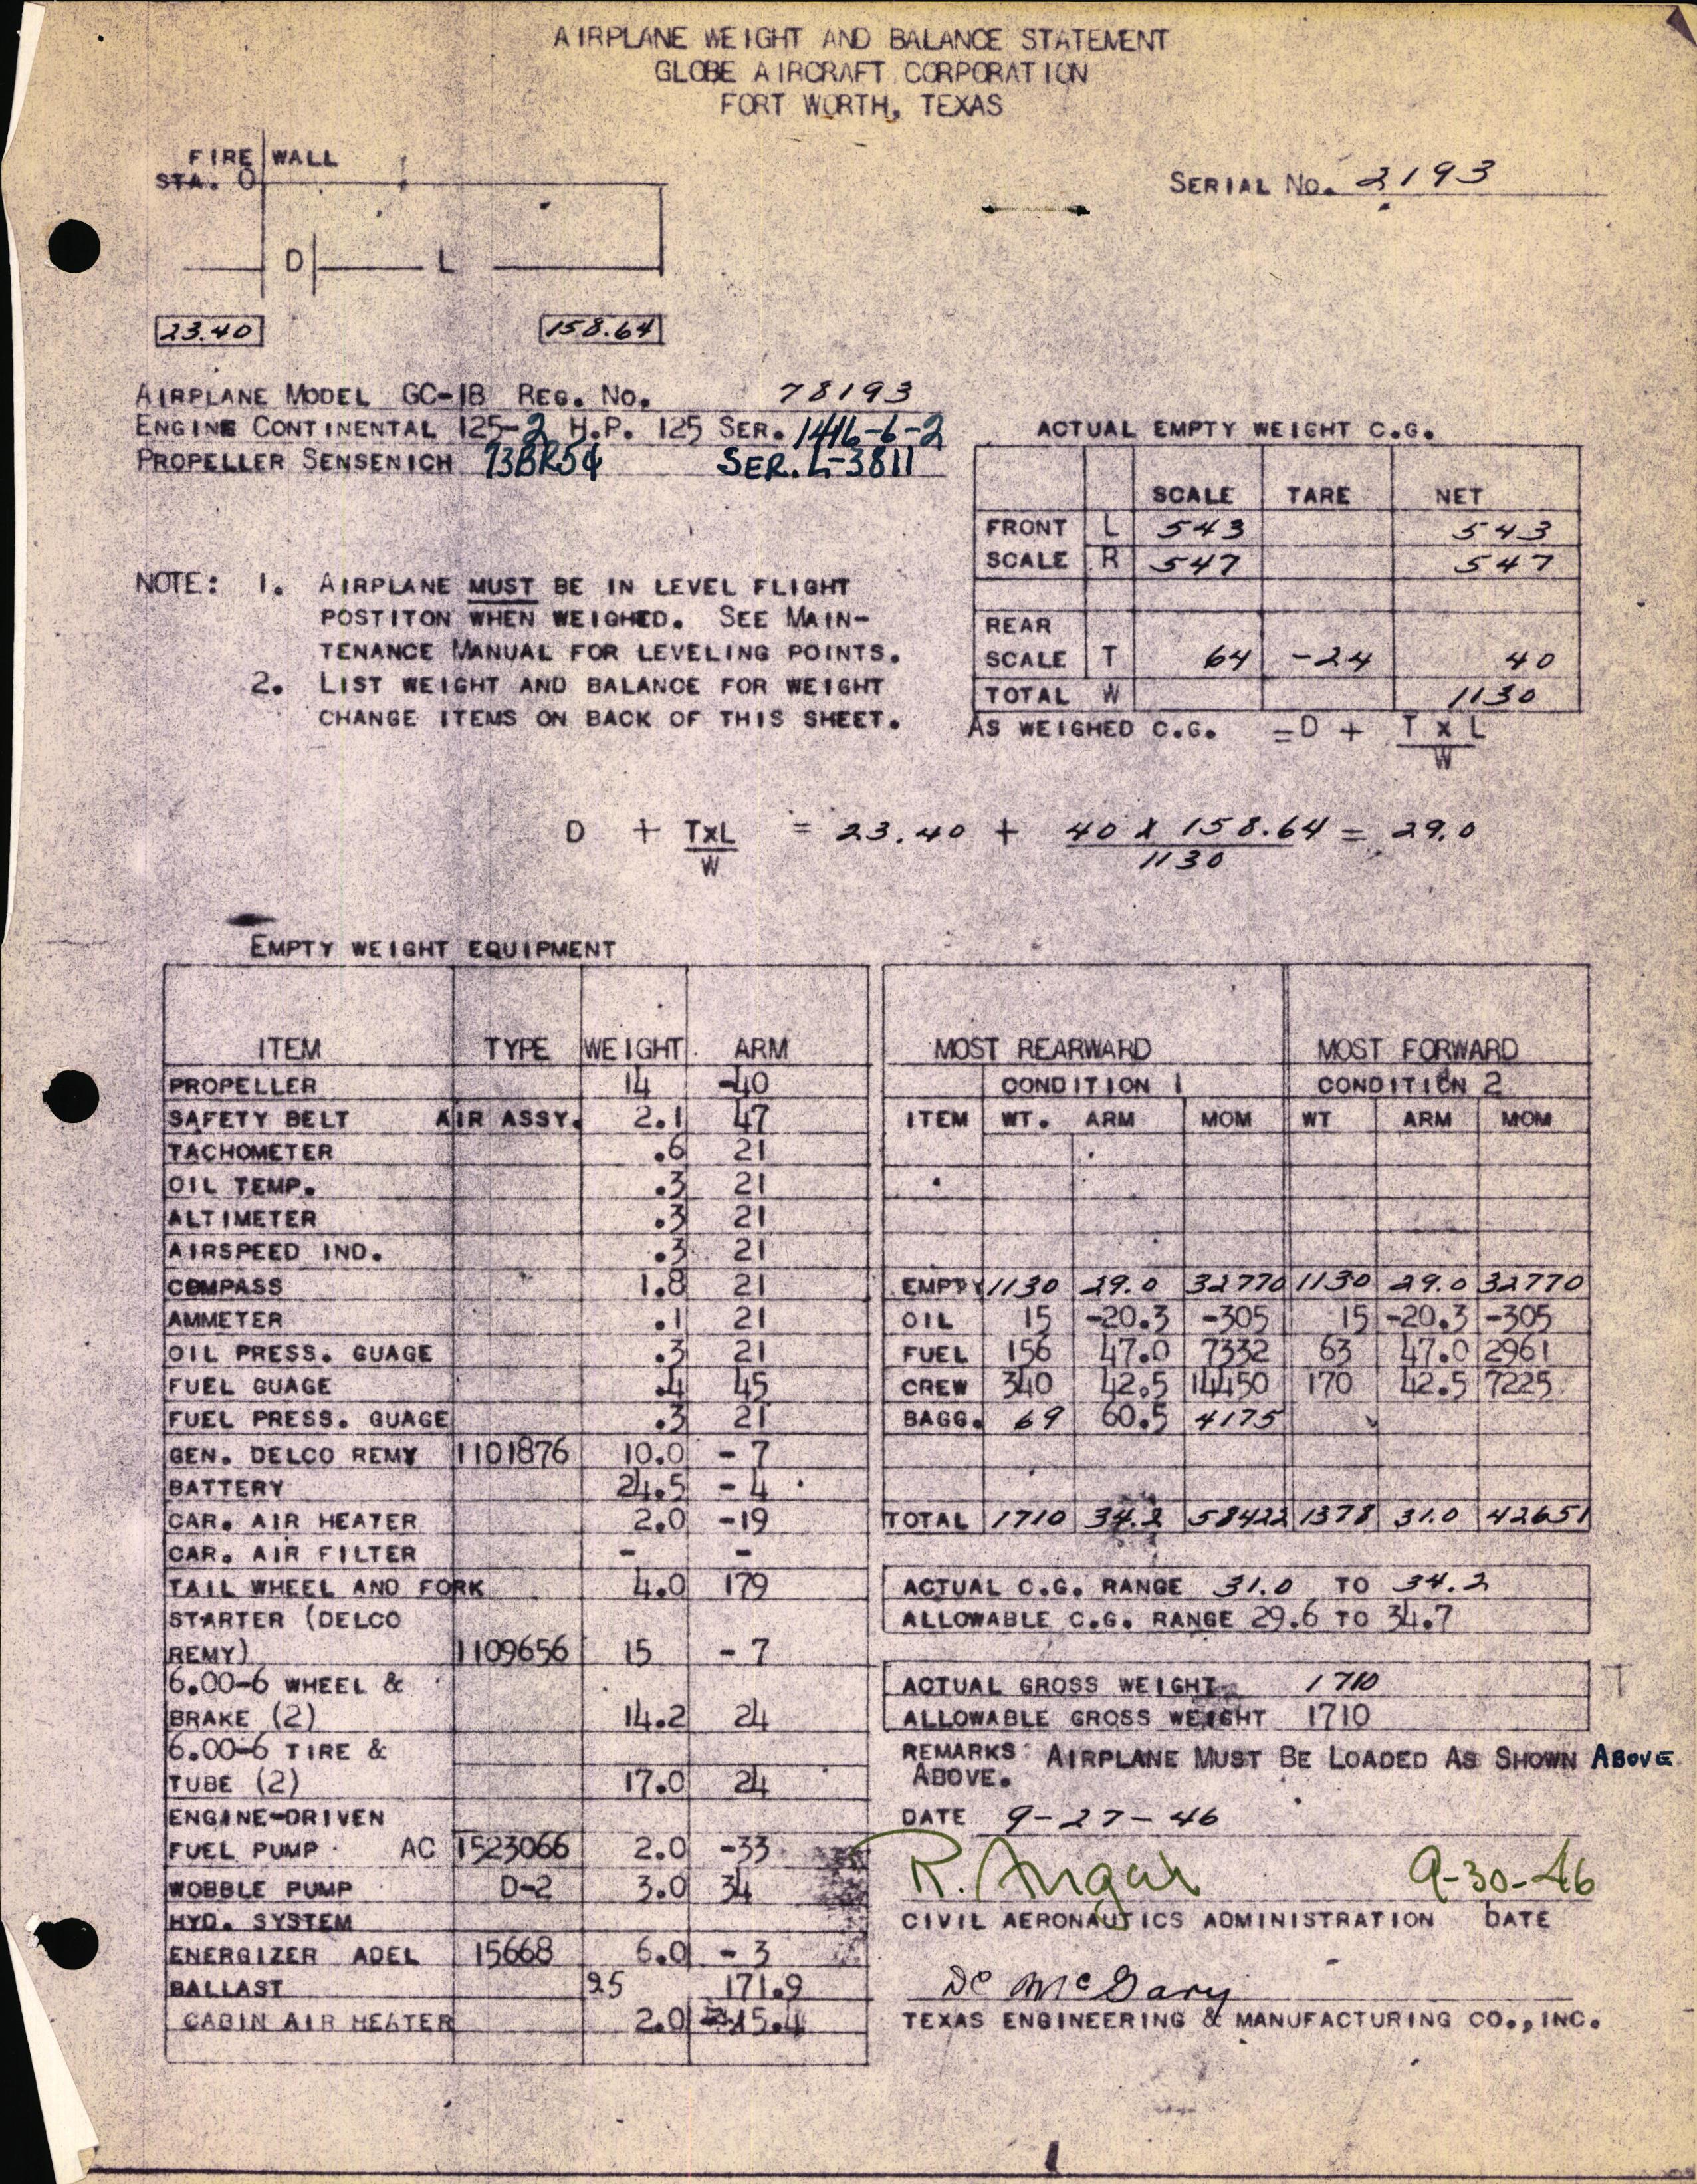 AIRPLANE WEIGHT AND BALANCE STATEMENT
GLOBE AIRCRAFT CORPORATION
FORT WORTH, TEXAS
FIRE WALL
STA. 0
SERIAL NO. 2193
D L
23.40 158.64
AIRPLANE MODEL GC-1B REG. NO. 78193
ENGINE CONTINENTAL 125-2 H.P. 125 SER. 1416-6-2
PROPELLER SENSENICH 73BR54 SER. L-3811
ACTUAL EMPTY WEIGHT C.G.
SCALE TARE NET
FRONT L 543 543
SCALE R 547 547
REAR
SCALE T 64 -24 40
TOTAL W 1130
AS WEIGHED C.G. = D + T X L
W
NOTE: 1. AIRPLANE MUST BE IN LEVEL FLIGHT
POSTITON WHEN WEIGHED. SEE MAIN-
TENANCE MANUAL FOR LEVELING POINTS.
2. LIST WEIGHT AND BALANCE FOR WEIGHT
CHANGE ITEMS ON BACK OF THIS SHEET.
D + TXL = 23.40 + 40 X 158.64 = 29.0
W 1130
EMPTY WEIGHT EQUIPMENT
ITEM TYPE WEIGHT ARM
PROPELLER 14 -40
SAFETY BELT AIR ASSY. 2.1 47
TACHOMETER .6 21
OIL TEMP. .3 21
ALTIMETER .3 21
AIRSPEED IND. .3 21
COMPASS 1.8 21
AMMETER .1 21
OIL PRESS. GUAGE .3 21
FUEL GUAGE .4 45
FUEL PRESS. GUAGE .3 21
GEN. DELCO REMY 1101876 10.0 - 7
BATTERY 24.5 - 4
CAR. AIR HEATER 2.0 -19
CAR. AIR FILTER - -
TAIL WHEEL AND FORK 4.0 179
STARTER (DELCO
REMY) 1109656 15 - 7
6.00-6 WHEEL &
BRAKE (2) 14.2 24
6.00-6 TIRE &
TUBE (2) 17.0 24
ENGINE-DRIVEN
FUEL PUMP AC 1523066 2.0 -33
WOBBLE PUMP D-2 3.0 34
HYD. SYSTEM
ENERGIZER ADEL 15668 6.0 - 3
BALLAST 25 171.9
CABIN AIR HEATER 2.0 -15.4
MOST REARWARD MOST FORWARD
CONDITION 1 CONDITION 2
ITEM WT. ARM MOM WT ARM MOM
EMPTY 1130 29.0 32770 1130 29.0 32770
OIL 15 -20.3 -305 15 -20.3 -305
FUEL 156 47.0 7332 63 47.0 2961
CREW 340 42.5 14450 170 42.5 7225
BAGG. 69 60.5 4175
TOTAL 1710 34.2 58422 1378 31.0 42651
ACTUAL C.G. RANGE 31.0 TO 34.2
ALLOWABLE C.G. RANGE 29.6 TO 34.7
ACTUAL GROSS WEIGHT 1710
ALLOWABLE GROSS WEIGHT 1710
REMARKS: AIRPLANE MUST BE LOADED AS SHOWN ABOVE
ABOVE.
DATE 9-27-46
R. Angar 9-30-46
CIVIL AERONAUTICS ADMINISTRATION DATE
McGary
TEXAS ENGINEERING & MANUFACTURING CO., INC.